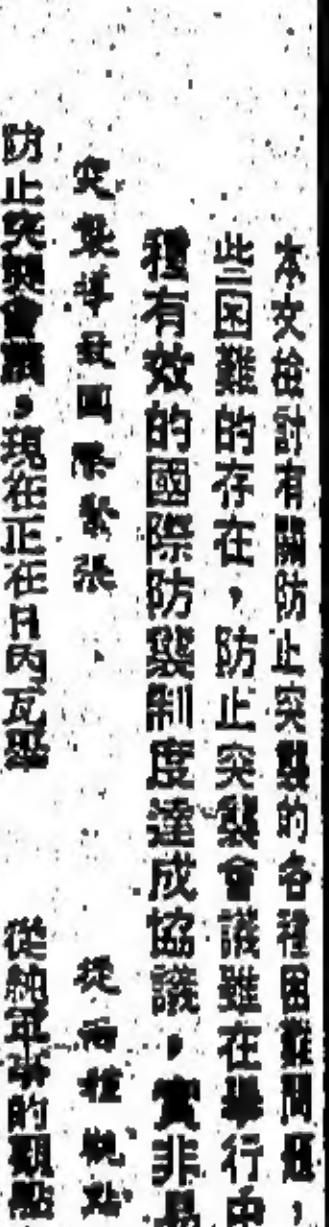 本文檢討有關防止突襲的各種困難問題，
些困難的存在，防止突襲會議雖在舉行中
種有效的國際防襲制度達成協議，實非易
突襲導致國際緊張
從兩種觀點
防止突襲會議，現在正在日內瓦舉
從純軍事的觀點